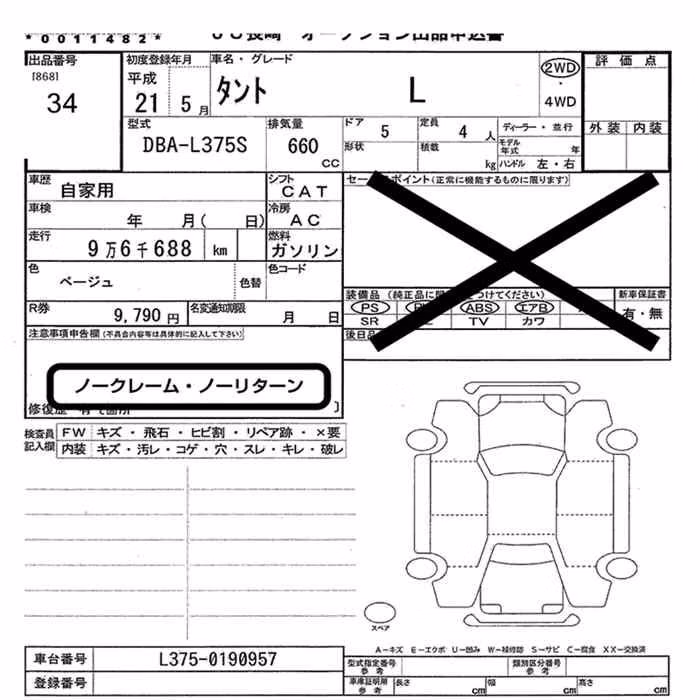 *0011482*
ＪＵ長崎 オークション出品申込書
出品番号
[868]
34
初度登録年月
平成
21 5 月
車名・グレード
タント L
2WD
・
4WD
評価点
外装 内装
型式
DBA-L375S
排気量
660
CC
ドア 5
形状
定員 4 人
積載 kg
ディーラー・並行
モデル年式 年
ハンドル 左・右
車歴 自家用
シフト CAT
車検 年 月( 日)
冷房 AC
走行 9万6千688 km
燃料 ガソリン
色 ベージュ
色替
色コード
R券 9,790 円
名変通知期限 月 日
セー ポイント(正常に機能するものに限ります)
装備品 (純正品に つけてください)
PS ABS エアB
SR TV カワ
新車保証書
有・無
後日品
注意事項申告欄(不具合内容等は具体的に記入して下さい)
ノークレーム・ノーリターン
修復歴 有 箇所 ]
検査員記入欄
FW キズ・飛石・ヒビ割・リペア跡・×要
内装 キズ・汚レ・コゲ・穴・スレ・キレ・破レ
スペア
A－キズ E－エクボ U－凹み W－補修跡 S－サビ C－腐食 XX－交換済
車台番号 L375-0190957
登録番号
型式指定番号 参考
類別区分番号 参考
車庫証明用 参考
長さ cm 幅 cm 高さ cm